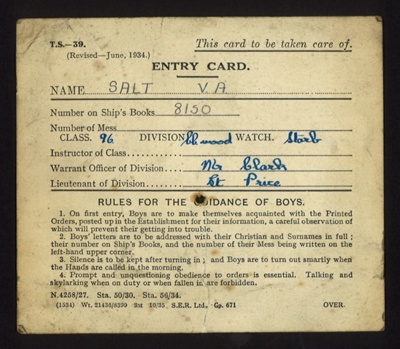 T.S.—39.
(Revised—June, 1934.)
This card to be taken care of.
ENTRY CARD.
NAME SALT V A
Number on Ship's Books 8150
Number of Mess
CLASS. 96 DIVISION WATCH. Starb
Instructor of Class
Warrant Officer of Division Mr Clark
Lieutenant of Division Lt Price
RULES FOR THE GUIDANCE OF BOYS.
1. On first entry, Boys are to make themselves acquainted with the Printed
Orders, posted up in the Establishment for their information, a careful observation of
which will prevent their getting into trouble.
2. Boys' letters are to be addressed with their Christian and Surnames in full ;
their number on Ship's Books, and the number of their Mess being written on the
left-hand upper corner.
3. Silence is to be kept after turning in ; and Boys are to turn out smartly when
the Hands are called in the morning.
4. Prompt and unquestioning obedience to orders is essential. Talking and
skylarking when on duty or when fallen in are forbidden.
N.4258/27. Sta. 50/30. Sta. 56/34.
(1534) Wt. 21436/6399 2st 10/35 S.E.R. Ltd. Gp. 671
OVER.